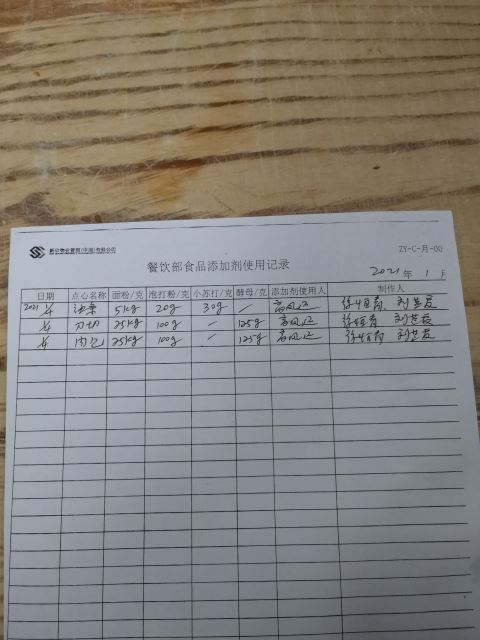 ZY-C-月-00
餐饮部食品添加剂使用记录
2021 年 1 月
日期 点心名称 面粉/克 泡打粉/克 小苏打/克 酵母/克 添加剂使用人 制作人
2021 1/4 油条 5kg 20g 30g / 高凤廷
1/4 刀切 25kg 100g / 125g 高凤廷
1/4 肉包 25kg 100g / 125g 高凤廷